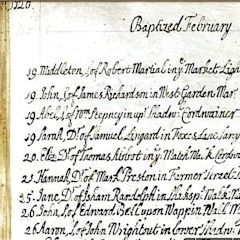 1720.
Baptized February
19. Middleton, S. of Robert Martial in yᵉ Market Ligh
19. John, S. of James Richardson in West Garden Mar.
19. Abel, S. of Wᵐ Stepney in upʳ Shadw: Cordwainer
19. Sarah, Dʳ of Samuel Lingard in Fox's Lane
20. Eliz: Dʳ of Thomas in yᵉ Walk Ma. Cordw
21. Hannah, Dʳ of Mark Preston in Farmer Street
25. Jane, Dʳ of Isham Randolph in Shaksp: Walk
26. John, S. of Edward Bell upon Wappin Wall
26. Aaron, S. of John Wrightout in Lower Shadw: